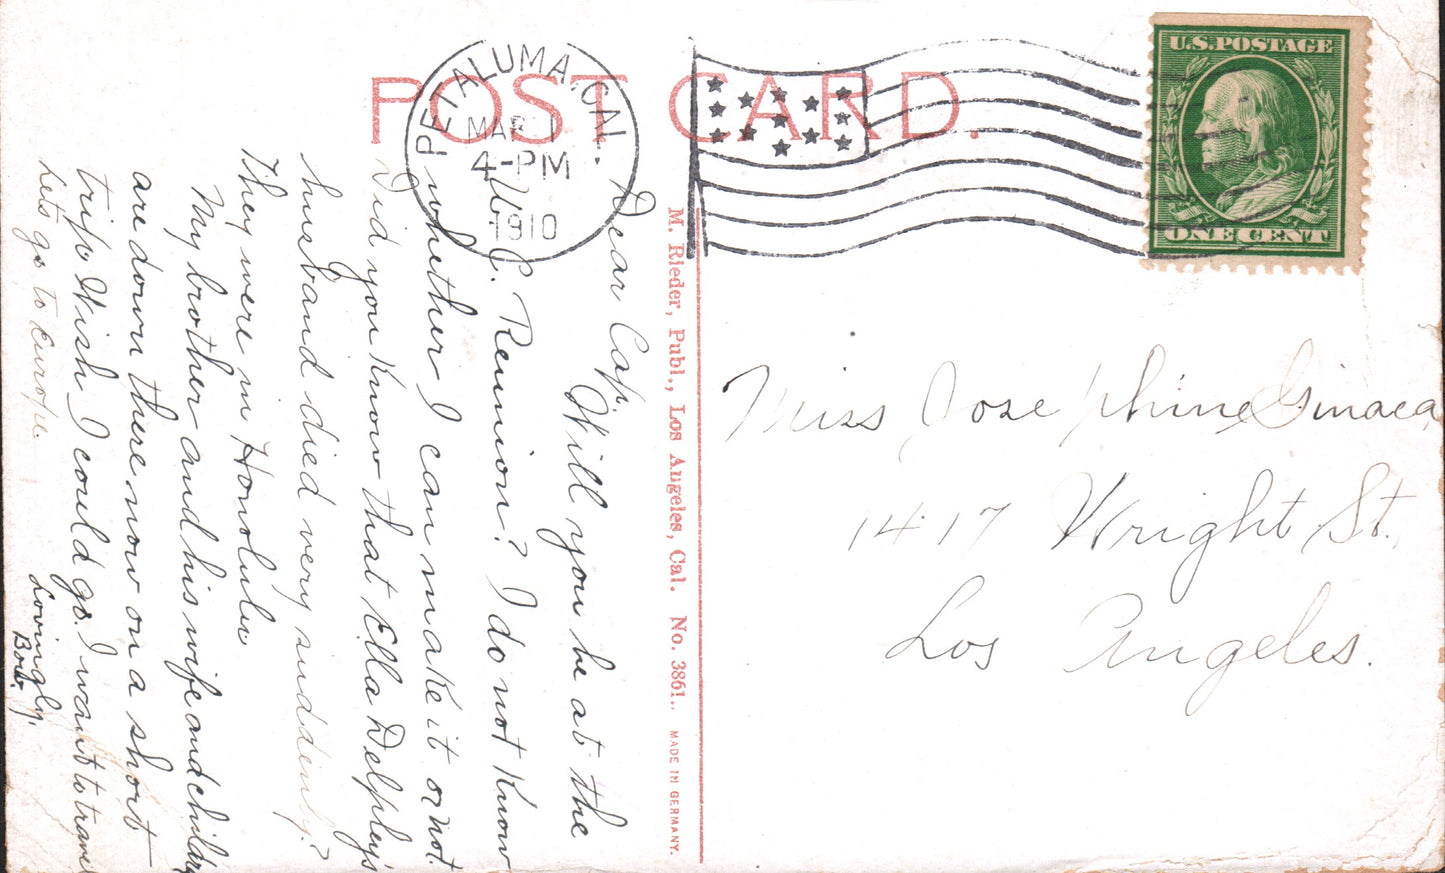 POST CARD.
PETALUMA, CAL.
MAR 1
4-PM
1910
U.S. POSTAGE
ONE CENT
Dear Cap.
Will you be at the
U. C. Reunion? I do not know
whether I can make it or not.
Did you know that Ella Delphey's
husband died very suddenly?
They were in Honolulu
My brother and his wife and childrn
are down there now on a short
trip. Wish I could go. I want to travel
Lets go to Europe.
Lovingly,
Bob.
M. Rieder, Publ., Los Angeles, Cal. No. 3861. MADE IN GERMANY.
Miss Josephine Ginaca
1417 Wright St.,
Los Angeles.